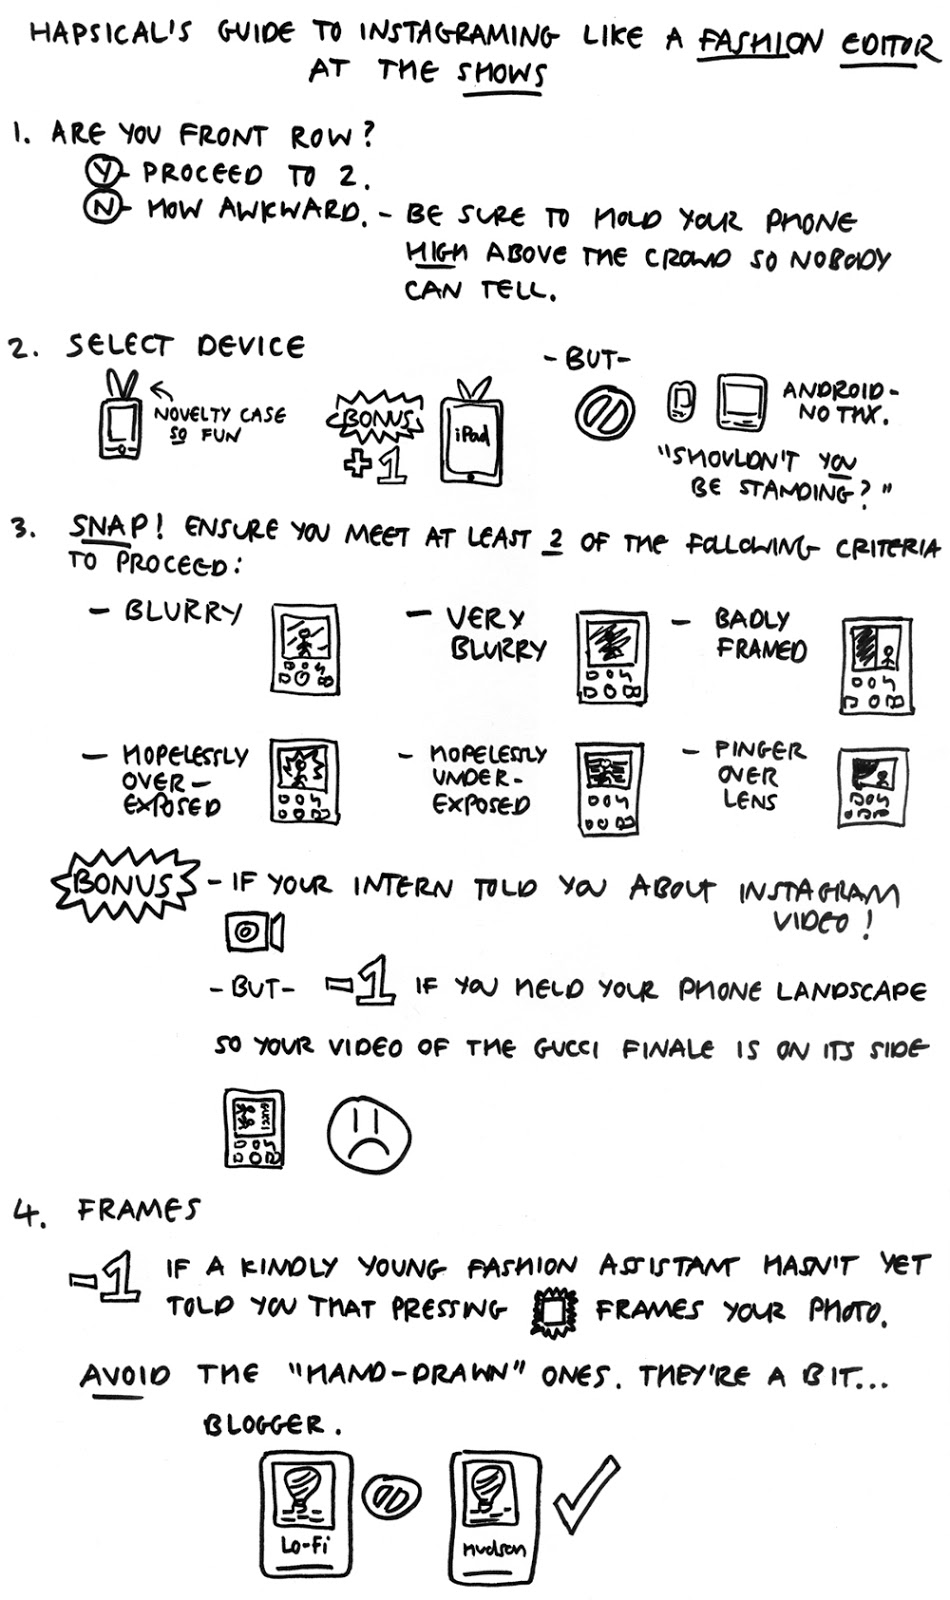 HAPSICAL'S GUIDE TO INSTAGRAMING LIKE A FASHION EDITOR
AT THE SHOWS
1. ARE YOU FRONT ROW?
Y - PROCEED TO 2.
N - HOW AWKWARD. - BE SURE TO HOLD YOUR PHONE
HIGH ABOVE THE CROWD SO NOBODY
CAN TELL.
2. SELECT DEVICE
NOVELTY CASE
SO FUN
BONUS
+1
iPad
- BUT -
ANDROID -
NO THX.
"SHOULDN'T YOU
BE STANDING?"
3. SNAP! ENSURE YOU MEET AT LEAST 2 OF THE FOLLOWING CRITERIA
TO PROCEED:
- BLURRY
- VERY
BLURRY
- BADLY
FRAMED
- HOPELESSLY
OVER-
EXPOSED
- HOPELESSLY
UNDER-
EXPOSED
- FINGER
OVER
LENS
BONUS - IF YOUR INTERN TOLD YOU ABOUT INSTAGRAM
VIDEO!
- BUT - -1 IF YOU HELD YOUR PHONE LANDSCAPE
SO YOUR VIDEO OF THE GUCCI FINALE IS ON ITS SIDE
GUCCI
4. FRAMES
-1 IF A KINDLY YOUNG FASHION ASSISTANT HASN'T YET
TOLD YOU THAT PRESSING FRAMES YOUR PHOTO.
AVOID THE "HAND-DRAWN" ONES. THEY'RE A BIT...
BLOGGER.
Lo-Fi
Hudson